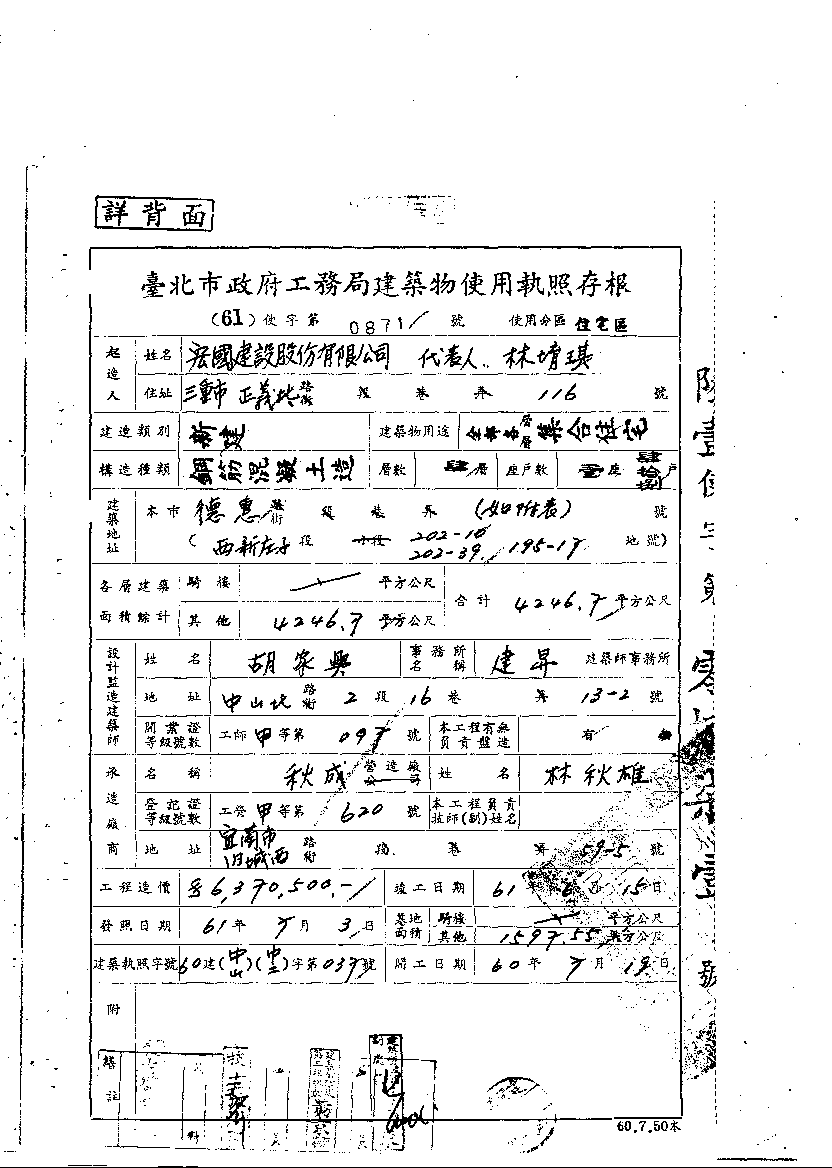 詳背面
臺北市政府工務局建築物使用執照存根
(61)使字第 0871 號 使用分區 住宅區
起造人 姓名 宏國建設股份有限公司 代表人 林堉琪
住址 三重市 正義北 路街 段 巷 弄 116 號
建造類別 新建 建築物用途 全部各層 集合住宅
構造種類 鋼筋混凝土造 層數 肆 層 座戶數 座 肆拾捌 戶
建築地址 本市 德惠 路街 段 巷 弄 (如附表) 號
(西新庄子 段 小段 202-10 202-39 195-17 地號)
各層建築面積餘計 騎樓 平方公尺 合計 4246.7 平方公尺
其他 4246.7 平方公尺
設計監造建築師 姓名 胡家興 事務所名稱 建昇 建築師事務所
地址 中山北 路街 2 段 16 巷 弄 13-2 號
開業證等級號數 工師 甲 等第 097 號 本工程有無負責監造 有
承造廠商 名稱 秋成 營造廠公司 姓名 林秋雄
登記證等級號數 工登 甲 等第 620 號 本工程負責技師(副)姓名
地址 宜蘭市 旧城西 路街 段 巷 弄 59-5 號
工程造價 6,370,500.- 竣工日期 61 年 6 月 15 日
發照日期 61 年 7 月 3 日 基地面積 騎樓 平方公尺
其他 1597.55 平方公尺
建築執照字號 60 建(中山)(中二)字第 037 號 開工日期 60 年 7 月 19 日
附
註
60.7.50本
陸壹使字第零捌柒壹號